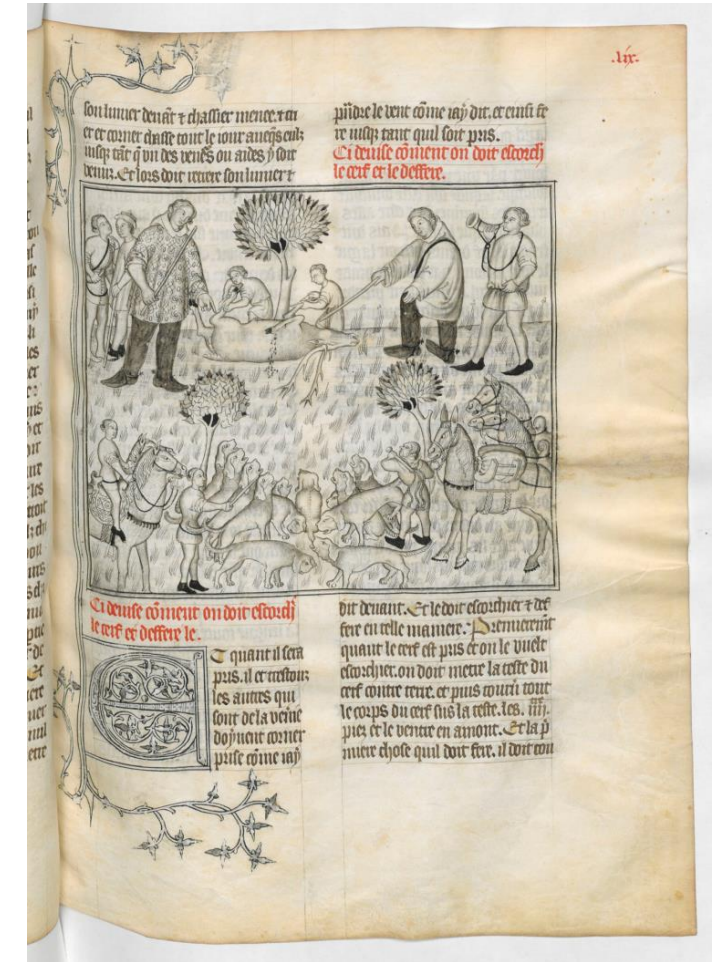 .lix.
son limier deuāt ⁊ chassier menee. ⁊ cri
er et corner chasse tout le iour auecqs eulz
iusqs tāt q̄ vn des veneꝰs ou aides y soit
venuz. Et lors doit retere son limier ⁊
pñdre le vent cōme iay dit. et einsi fe
re iusqs tant quil soit pris.
Ci deuise cōment on doit escorch
le cerf et le deffere.
Ci deuise cōment on doit escorch
le cerf et deffere le.
Et quant il sera
pris. il et trestouz
les autres qui
sont de la vēne
doyuent corner
prise cōme iay
dit deuant. Et le doit escorchier ⁊ def
fere en telle maniere. Premieremt
quant le cerf est pris et on le vuelt
escorchier. on doit metre la teste du
cerf contre terre. et puis tourn tout
le corps du cerf sus la teste. les. iiii.
piez et le ventre en amont. Et la p̄
miere chose quil doit fere. il doit cou